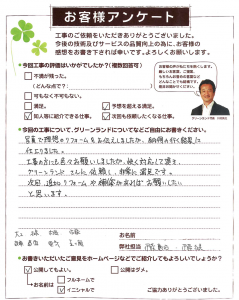 お客様アンケート
工事のご依頼をいただきありがとうございました。
今後の技術及びサービスの品質向上の為に、お客様の
感想をお書き下されば幸いです。よろしくお願いします。
◆今回工事の評価はいかがでしたか?(複数回答可)
不満が残った。
(どんな点で?:
可もなく不可もない。
満足。
予想を超える満足。
知人等に紹介できる仕事。
次回も依頼したくなる仕事。
グリーンランド
◆今回の工事について、グリーンランドについてなどご自由にお書きください。
写真で理想のリフォームをお伝えしましたが、納得の行く結果に
仕上りました。
工事の方にも色々お願いしましたが、快く対応して頂き、
グリーンランドさんに依頼し、非常に満足です。
次回、追加リフォームや補修があればお願いしたい
と思います。
お名前
弊社担当
◆お書きいただいたご意見をホームページなどでご紹介してもよろしいでしょうか?
公開してもよい。
公開はダメ。
お名前は
フルネームで
イニシャルで
ご協力ありがとうございました。